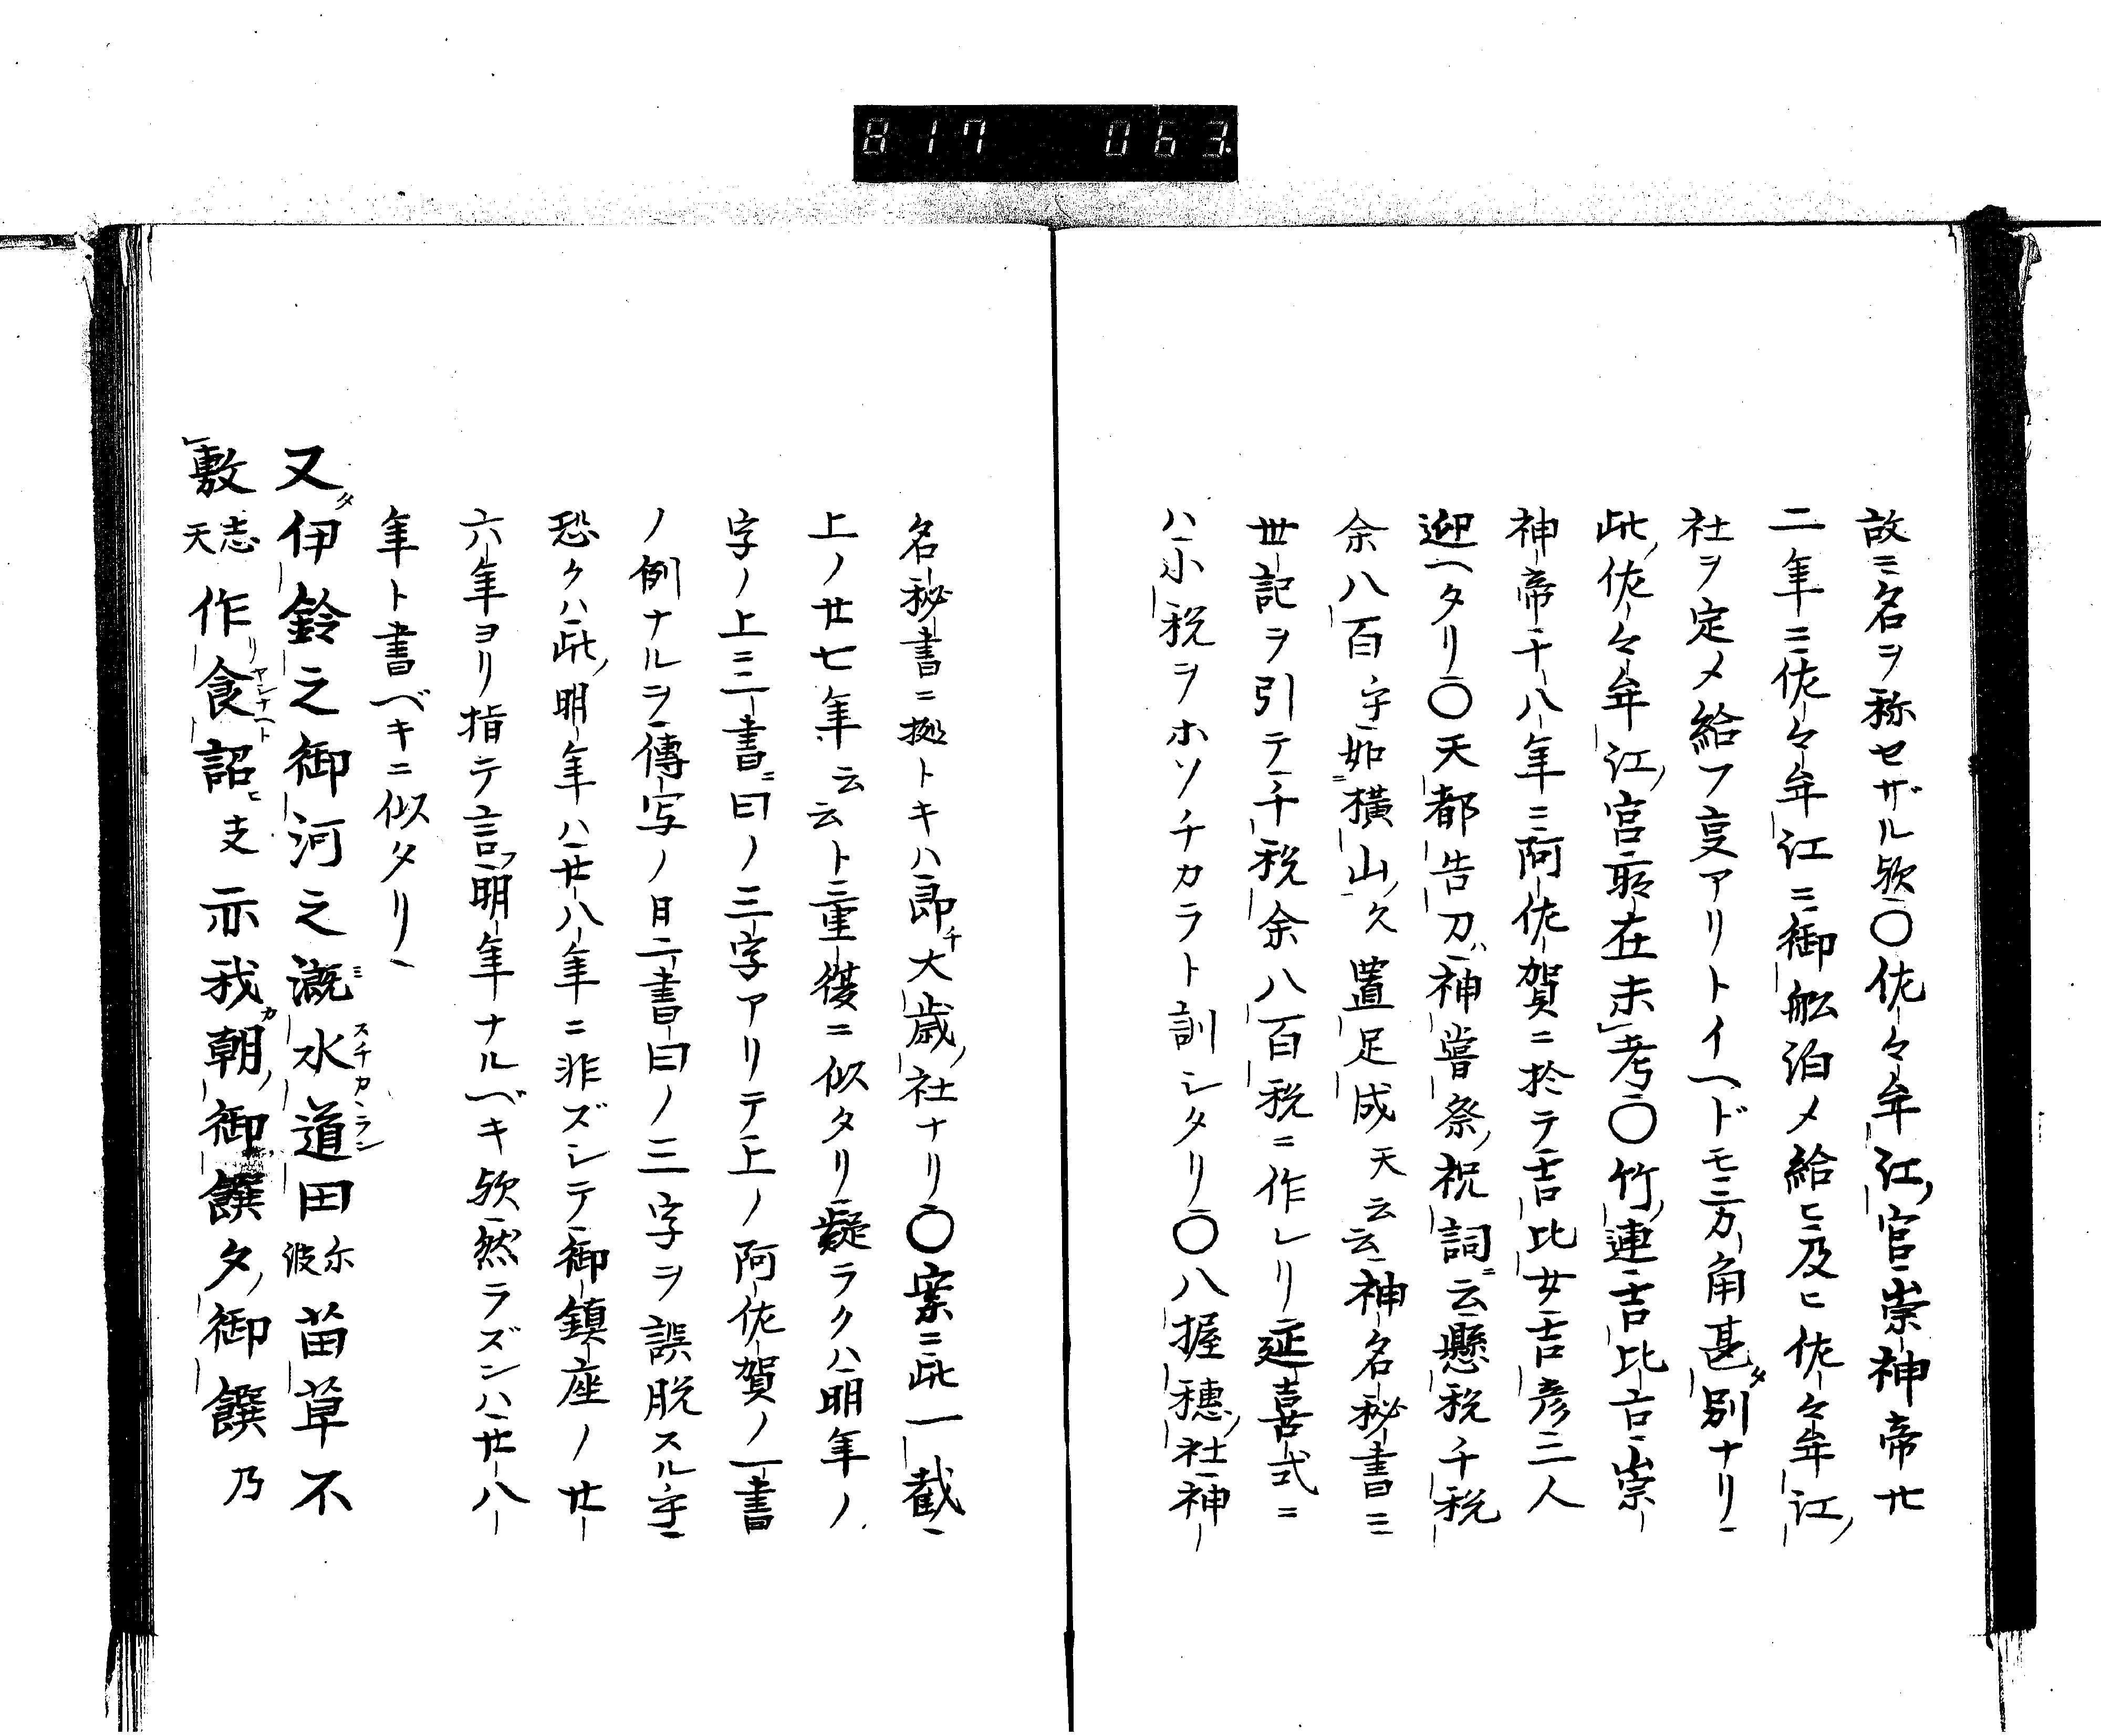 817 063
故ニ名ヲ称セザル歟〇佐々牟江官崇神帝廿
二年ニ佐々牟江ニ御舩泊メ給ヒ及ヒ佐々牟江
社ヲ定メ給フ叓アリトイヘドモ三方角甚タ別ナリ
此佐々牟江宮最在未考〇竹連吉比古崇
神帝十八年ニ阿佐賀ニ於テ吉比女吉彦三人
迎ヘタリ〇天都告刀ハ神嘗祭祝詞ニ云懸税千税
余八百字如横山久置足成天云云神名秘書ニ
世記ヲ引テ千税余八百税ニ作レリ延喜式ニ
ハ小税ヲホソチカラト訓シタリ〇八握穗社神
名秘書ニ拠トキハ即チ大歳社ナリ〇案ニ此一截
上ノ廿七年云云ト重複ニ似タリ疑ラクハ明年ノ
字ノ上ニ一書ニ曰ノ三字アリテ上ノ阿佐賀ノ一書
ノ例ナルヲ傳写ノ日二書曰ノ三字ヲ誤脱スル字
恐クハ此明年ハ廿八年ニ非ズシテ御鎮座ノ廿
六年ヨリ指テ言フ明年ナルベキ歟然ラズンハ廿八
年ト書ベキニ似タリ
又タ伊鈴之御河之漑ミ水道田スチカンラン尓波苗草不
敷志天作リ食ヤシナヘト詔ヒ支亦我カ朝御饌夕御饌乃